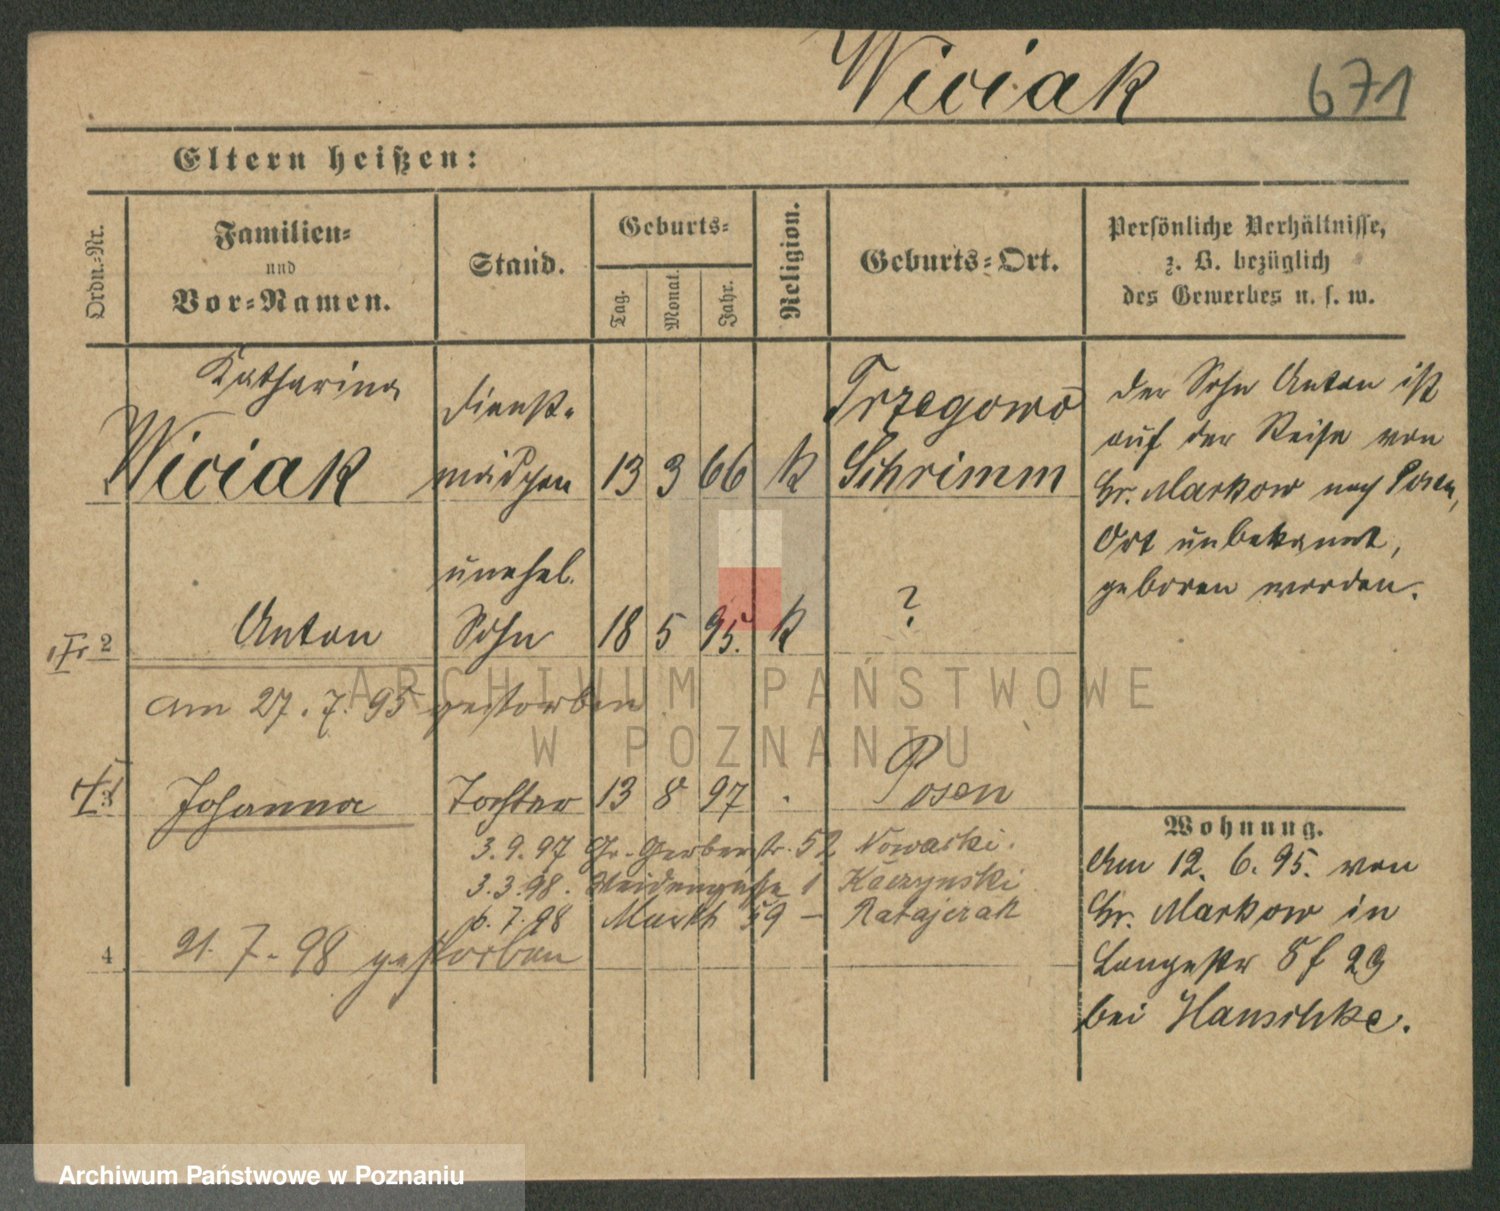 Wiciak 671
Eltern heißen:
Ordn.-Nr.
Familien-
und
Vor-Namen.
Stand.
Geburts-
Tag.
Monat.
Jahr.
Religion.
Geburts-Ort.
Persönliche Verhältnisse,
z. B. bezüglich
des Gewerbes u. s. w.
Katharina
1 Wiciak
Dienst-
mädchen
13 3 66 K
Trzegowo
Schrimm
Der Sohn Anton ist
auf der Reise von
Gr. Markow nach Posen,
Ort unbekannt,
geboren worden.
2 Anton
unehel.
Sohn
18 5 95. K ?
am 27. 7. 95 gestorben
3 Johanna Tochter 13 8 97 . Posen
3. 9. 97 Gr. Gerberstr. 52 Nowacki.
3. 3. 98. Weidengasse 1 Kaczynski
6. 7. 98 Markt 59 – Ratajczak
4 21. 7. 98 gestorben
Wohnung.
Am 12. 6. 95. von
Gr. Markow in
Langestr 8 f 29
bei Hanschke.
ARCHIWUM PAŃSTWOWE
W POZNANIU
Archiwum Państwowe w Poznaniu